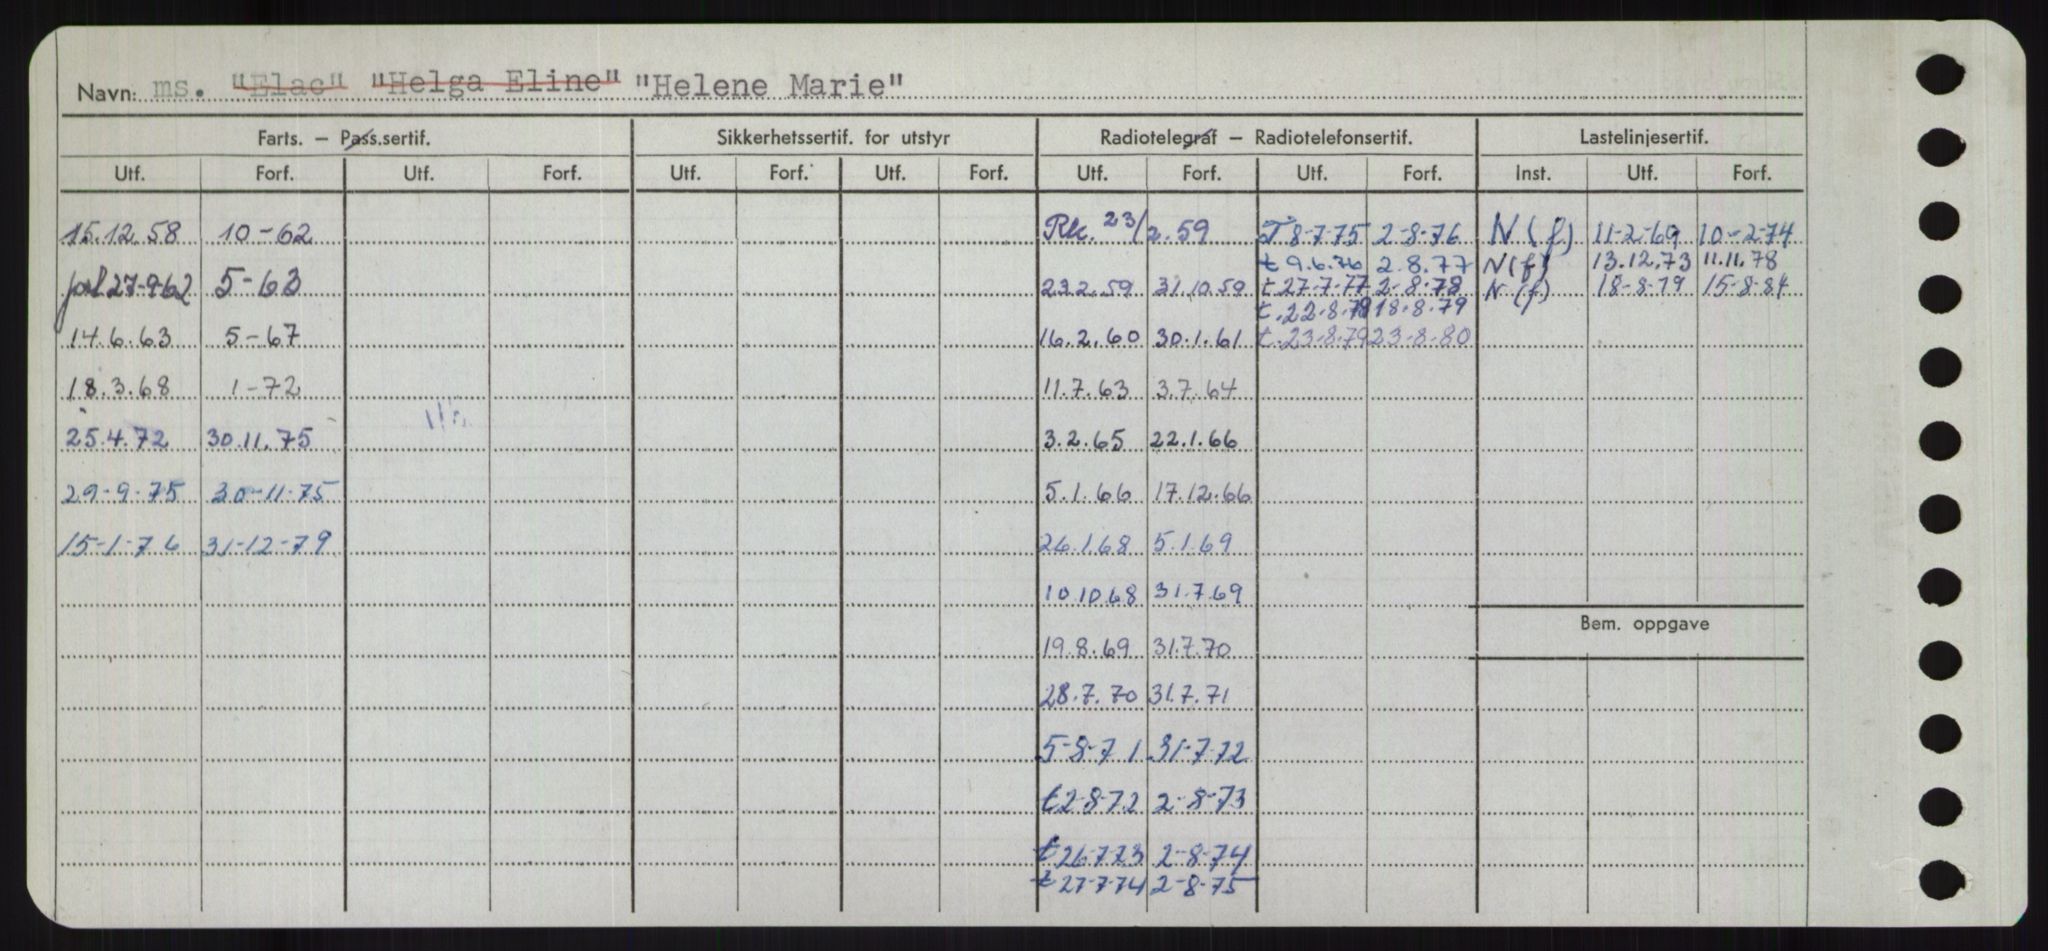 Navn: ms. "Elac" "Helga Eline" "Helene Marie"
Farts. — Pass.sertif. Sikkerhetssertif. for utstyr Radiotelegraf — Radiotelefonsertif. Lastelinjesertif.
Utf. Forf. Utf. Forf. Utf. Forf. Utf. Forf. Utf. Forf. Utf. Forf. Inst. Utf. Forf.
15.12.58 10-62 Rk. 23/2.59 T 8-7-75 2-8-76 N (f) 11-2-69 10-2-74
t 9.6.76 2.8.77 N (f) 13.12.73 11.11.78
forl 27-9-62 5-63 23.2.59 31.10.59 t 27-7-77 2-8-78 N (f) 18-8-79 15-8-84
t. 22.8.78 18.8.79
14.6.63 5-67 16.2.60 30.1.61 t. 23-8-79 23-8-80
18.3.68 1-72 11.7.63 3.7.64
25.4.72 30.11.75 3.2.65 22.1.66
29-9-75 30-11-75 5.1.66 17.12.66
15-1-76 31-12-79 26.1.68 5.1.69
10.10.68 31.7.69
Bem. oppgave
19.8.69 31.7.70
28.7.70 31.7.71
5-8-71 31-7-72
t 2-8-72 2-8-73
t 26-7-73 2-8-74
t 27-7-74 2-8-75